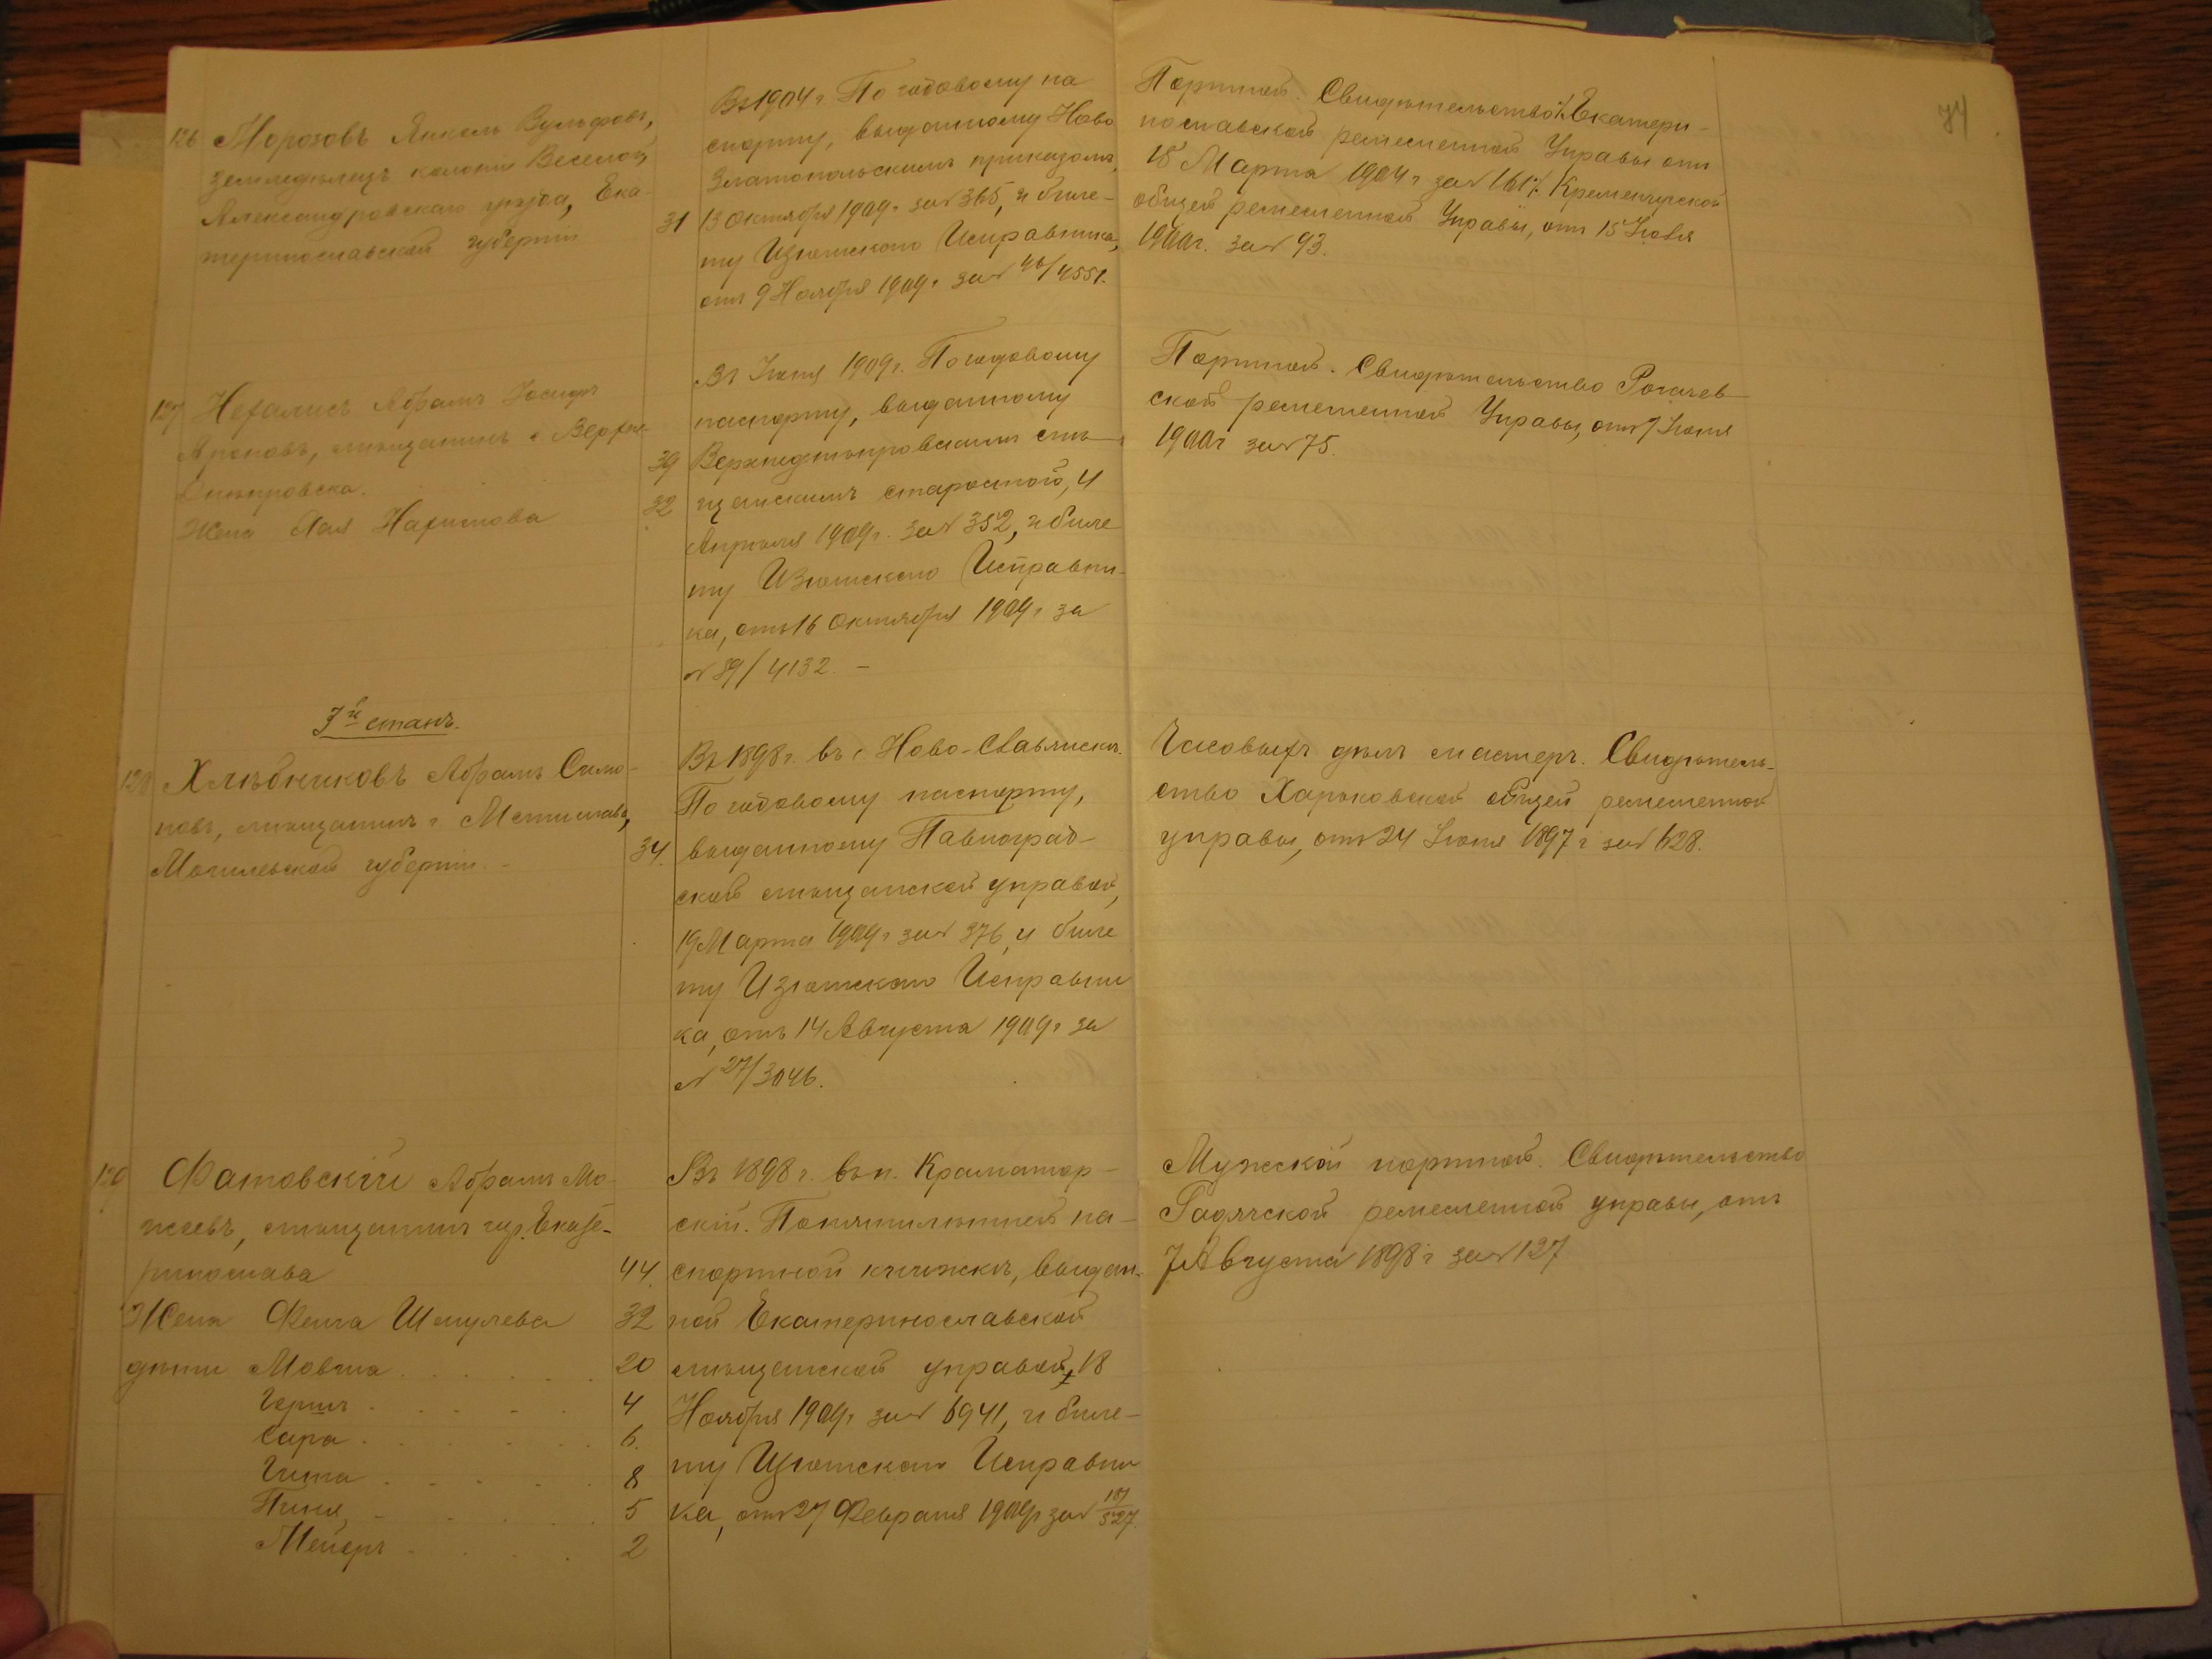 74
126 Морозовъ Янкель Вульфовъ,
земледѣлецъ колоніи Веселой,
Александровскаго уѣзда, Ека-
теринославской губерніи
31
Въ 1904 г. По годовому па
спорту, выданному Ново
златопольскимъ приказомъ,
13 Октября 1909 г. за № 365, и биле-
ту Изюмскаго Исправника,
отъ 9 Ноября 1909 г. за № 46/4551.
Портной. Свидѣтельство Екатери-
нославской ремесленной Управы отъ
18 Марта 1904 г. за № 161 Кременчугской
общей ремесленной Управы, отъ 15 Іюля
1900 г. за № 93.
127 Абрамъ Іосифъ
Ароновъ, мѣщанинъ г. Верхне-
днѣпровска.
39
Жена Хая
32
Въ Іюнѣ 1909 г. По годовому
паспорту, выданному
Верхнеднѣпровскимъ мѣ-
щанскимъ старостой, 4
Апрѣля 1909 г. за № 352, и биле
ту Изюмскаго Исправни-
ка, отъ 16 Октября 1909 г. за
№ 39/4132. -
Портной. Свидѣтельство Рогачев-
ской ремесленной Управы, отъ 7 Іюня
1900 г. за № 75.
3й станъ.
128 Хлѣбниковъ Абрамъ Симо-
новъ, мѣщанинъ г. Мстиславля,
Могилевской губерніи. -
34.
Въ 1898 г. въ с. Ново-Славянскѣ.
По годовому паспорту,
выданному Павлоград-
ской мѣщанской управой,
19 Марта 1909 г. за № 376, и биле
ту Изюмскаго Исправни
ка, отъ 14 Августа 1909 г. за
№ 27/3046.
Часовыхъ дѣлъ мастеръ. Свидѣтель-
ство Харьковской общей ремесленной
управы, отъ 24 Іюня 1897 г. за № 628.
Фатовскій Абрамъ Мо-
исеевъ, мѣщанинъ гор. Екате-
ринослава
44.
Жена Фейга Шмулева 32
дѣти Мовша . . . . . . 20
Гершъ . . . . . 4
Сара . . . . . . 6.
Гита . . . . . 8
Пиня . . . . . 5
Мейеръ . . . . 2
Въ 1898 г. въ п. Краматор-
скій. По пятилѣтней па-
спортной книжкѣ, выдан-
ной Екатеринославской
мѣщанской управой, 18
Ноября 1904 г. за № 6941, и биле-
ту Изюмскаго Исправни
ка, отъ 27 Февраля 1909 г. за № 187/527.
Мужской портной. Свидѣтельство
Гадячской ремесленной управы, отъ
7 Августа 1898 г. за № 127